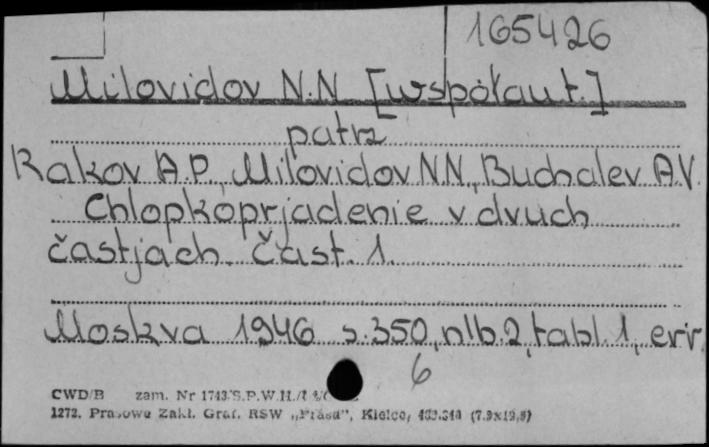 165426
Milovidov N.N. [współaut.]
patrz
Rakov A.P., Milovidov N.N., Buchalev A.V.
Chlopkoprjadenie v dvuch
častjach. Čast. 1.
Moskva 1946 s. 350, nlb. 2, tabl. 1, err.
6
CWD/B zam. Nr 1743/S.P.W.H./
1272. Prasowe Zakł. Graf. RSW „Prasa", Kielce, (7.9x12,5)